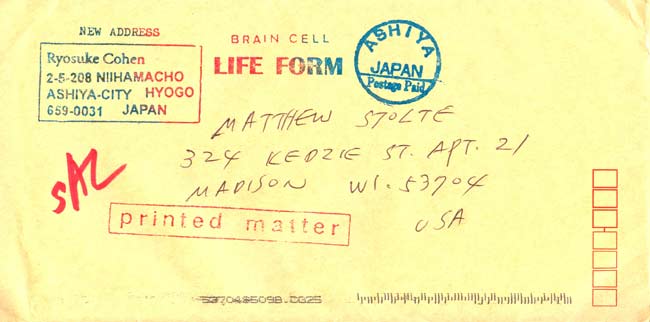 NEW ADDRESS
Ryosuke Cohen
2-5-208 NIIHAMACHO
ASHIYA-CITY HYOGO
659-0031 JAPAN
BRAIN CELL
LIFE FORM
ASHIYA
JAPAN
Postage Paid
MATTHEW STOLTE
324 KEDZIE ST. APT. 21
MADISON WI. 53704
USA
SAL
printed matter